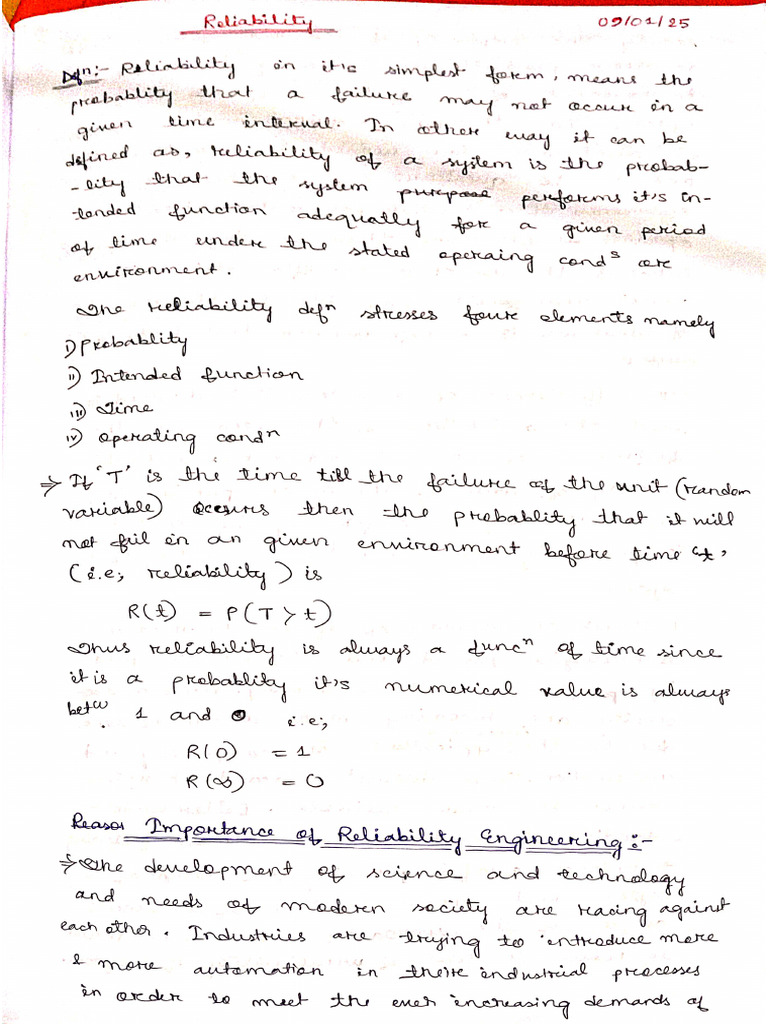 Reliability 09/01/25
Defn:- Reliability in it's simplest form, means the
probablity that a failure may not occur in a
given time interval. In other way it can be
defined as, reliability of a system is the probab-
-lity that the system purpose performs it's in-
tended function adequatly for a given period
of time under the stated operaing conds are
environment.
The reliability defn stresses four elements namely
i) Probablity
ii) Intended function
iii) Time
iv) operating condn
⇒ If 'T' is the time till the failure of the unit (random
variable) occurs then the probablity that it will
not fail in an given environment before time 't'
(i.e; reliability) is
R(t) = P(T > t)
Thus reliability is always a funcn of time since
it is a probablity it's numerical value is always
betw 1 and 0 i.e;
R(0) = 1
R(∞) = 0
Reason Importance of Reliability Engineering:-
⇒ The development of science and technology
and needs of modern society are racing against
each other. Industries are trying to introduce more
& more automation in their industrial processes
in order to meet the ever increasing demands of